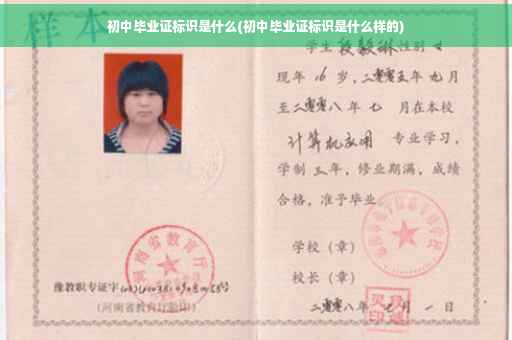 初中毕业证标识是什么(初中毕业证标识是什么样的)
样本
学生 段毅琳 性别 女
现年 16 岁,二零零五年 九 月
至二零零八年 七 月在本校
计算机应用 专业学习,
学制 三 年,修业期满,成绩
合格,准予毕业
学校(章)
校长(章)
二零零八年 七 月 一 日
河南省教育厅
豫教职专证字
(河南省教育厅验印)